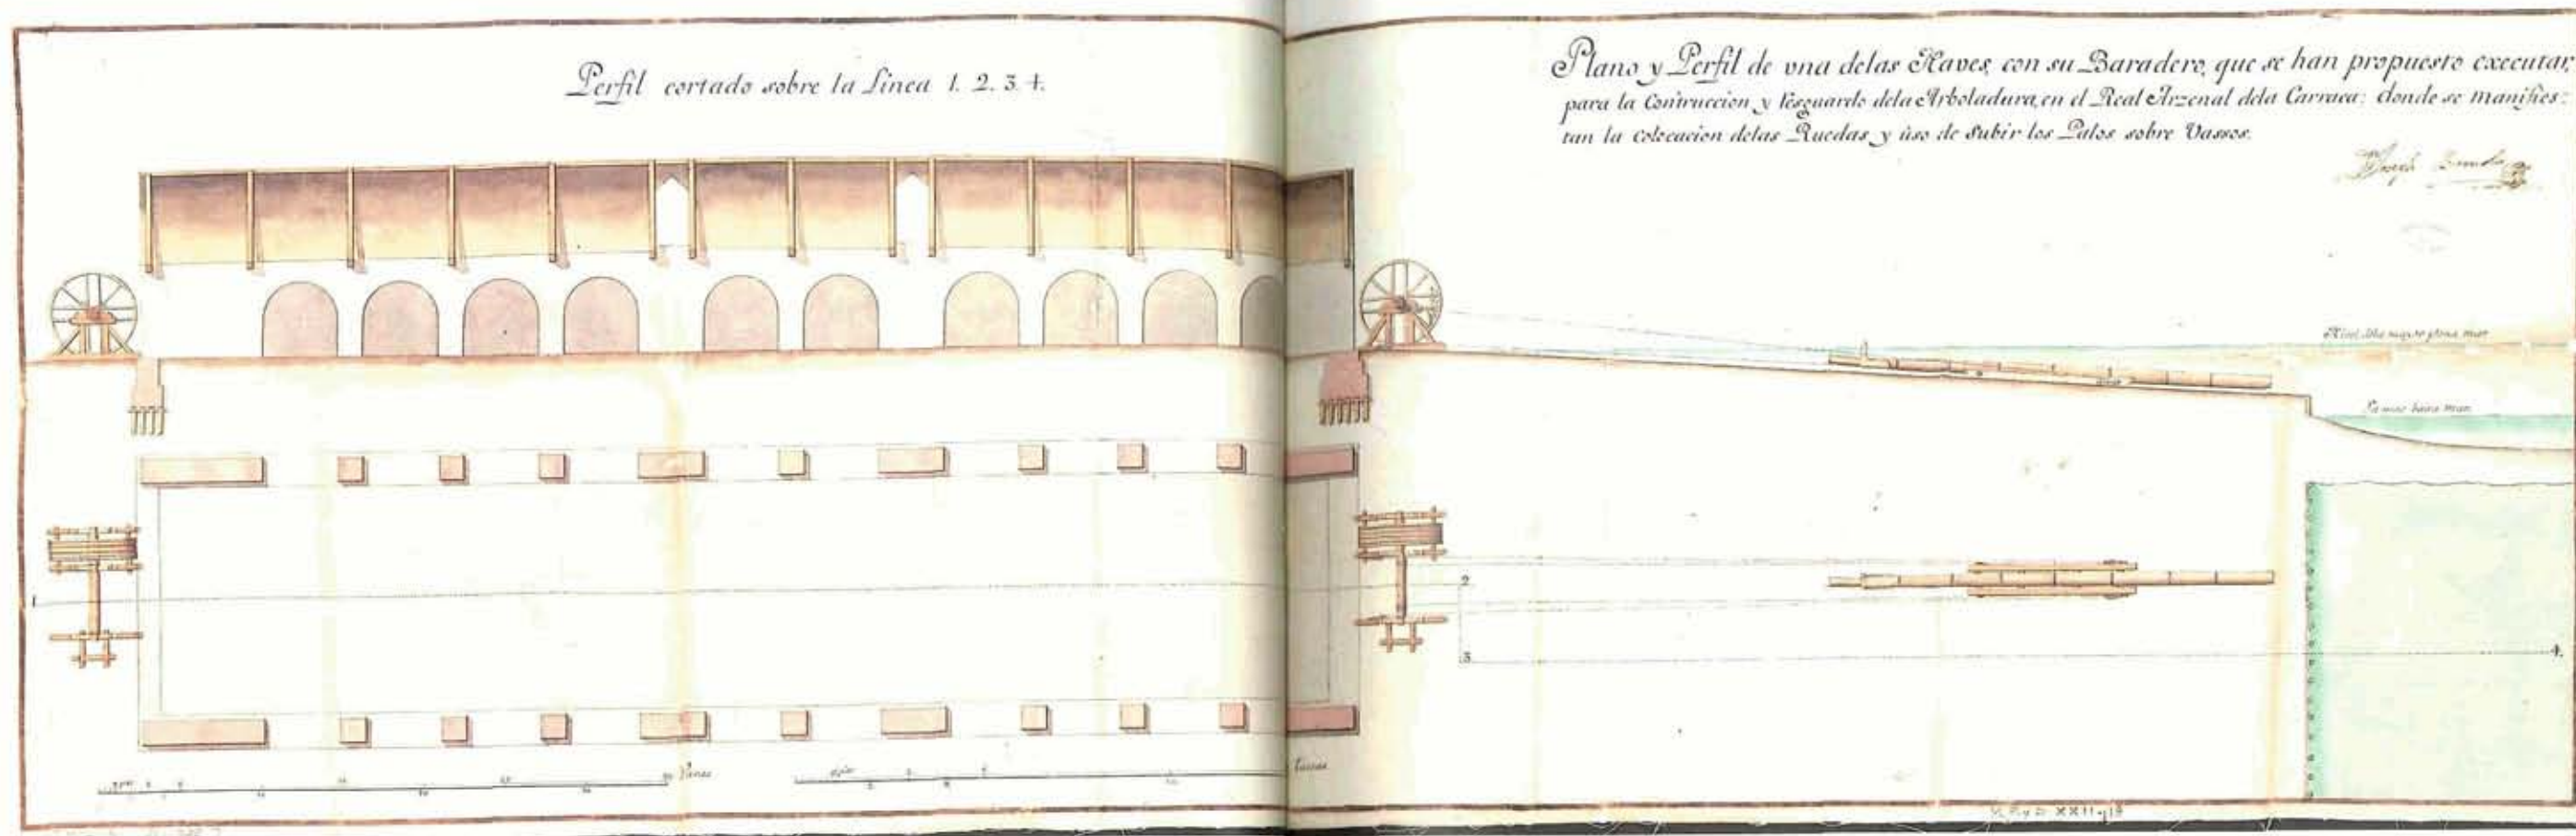 Perfil cortado sobre la Linea 1. 2. 3. 4.
Plano y Perfil de vna delas Naves, con su Baradero, que se han propuesto executar,
para la Contruccion y Resguardo dela Arboladura, en el Real Arzenal dela Carraca: donde se manifies=
tan la colocacion delas Ruedas y ùso de Subir los Palos sobre Vassos.
Nivel dela mayor plena mar
La mas baxa mar
1
2
3
4.
Varas